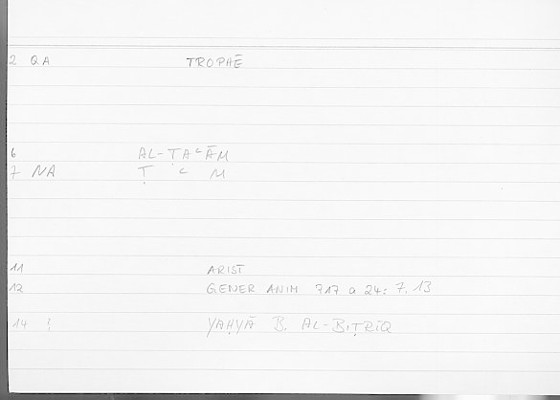 2 QA TROPHĒ
6 AL-ṬAʿĀM
7 NA Ṭ ʿ M
11 ARIST
12 GENER ANIM 717 a 24: 7.13
14 ! YAḤYĀ B. AL-BIṬRĪQ